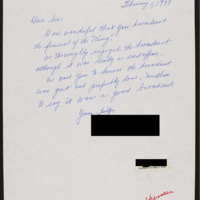 February 1, 19
Dear Sir:
How wonderful that you broadcast
the funeral of the "King".
We thoroughly enjoyed the broadcast
although it was really a sad affair.
We want you to the broadcast
was great and perfectly done. Needless
to say it was a good broadcast.
Yours truly,